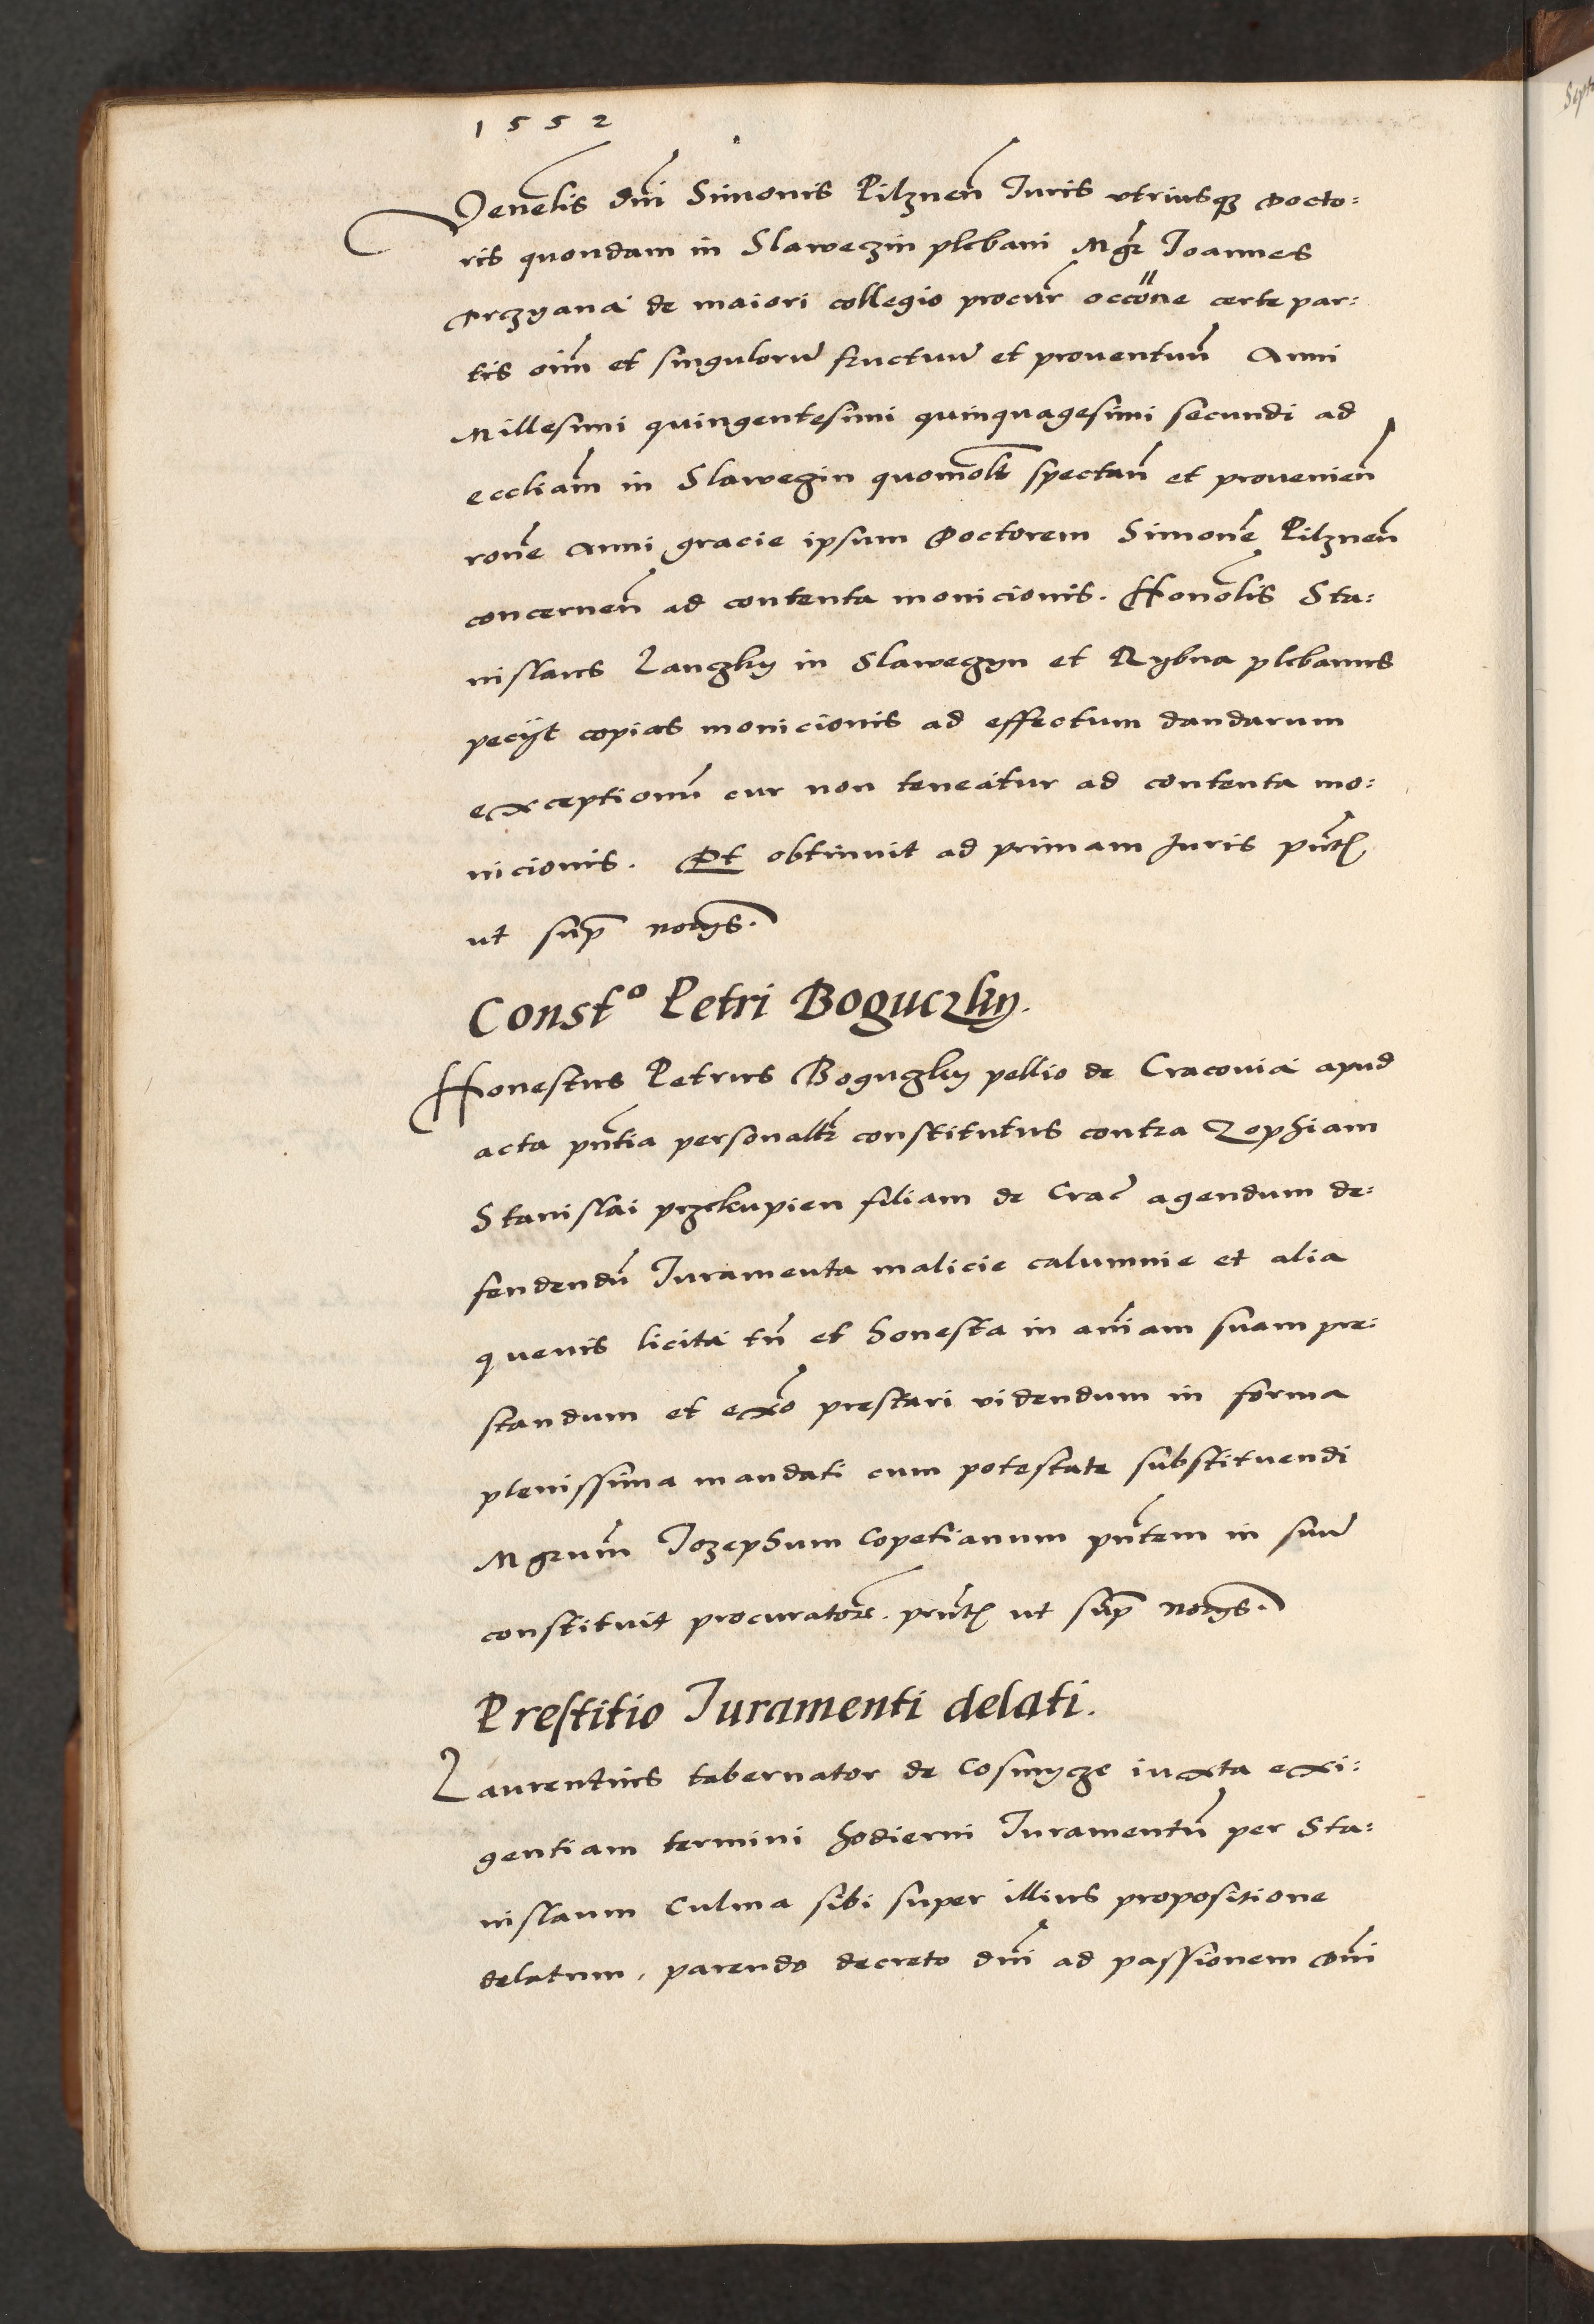 1552
Venelis Dni Simonis Pilznen Iuris vtriusq3 Docto:
ris quondam in Slaweczin plebani Mgr Ioannes
Orczyana de maiori collegio procur occone certe par:
tis oim et singuloru fructuu et prouentuum Anni
Millesimi quingentesimi quinquagesimi secundi ad
eccliam in Slawegin quomolt spectan et prouenien
rone Anni gracie ipsum Doctorem Simone Pilznen
concernen ad contenta monicionis. Honolis Sta:
nislaus Langky in Slawegyn et Rybna plebanus
peciit copias monicionis ad effectum dandarum
exceptionu cur non teneatur ad contenta mo:
nicionis. Et obtinuit ad primam Iuris pntb
ut sup notys.
Const° Petri Boguczky.
Honestus Petrus Bogugky pellio de Cracouia apud
acta pntia personaltr constitutus contra Zophiam
Stanislai przekupien filiam de Crac agendum de:
fendendu Iuramenta malicie calumnie et alia
queuis licita tn et honesta in aniam suam pre:
standum et exo prestari videndum in forma
plenissima mandati cum potestate substituendi
Mgrum Iozephum Copetianum pntem in suu
constituit procuratore. prntb ut sup notys.
Prestitio Iuramenti delati.
Laurentius tabernator de Cosmycze iuxta exi:
gentiam termini hodierni Iuramentu per Sta:
nislaum Culma sibi super illius propositione
delatum, parendo decreto dni ad passionem Dni